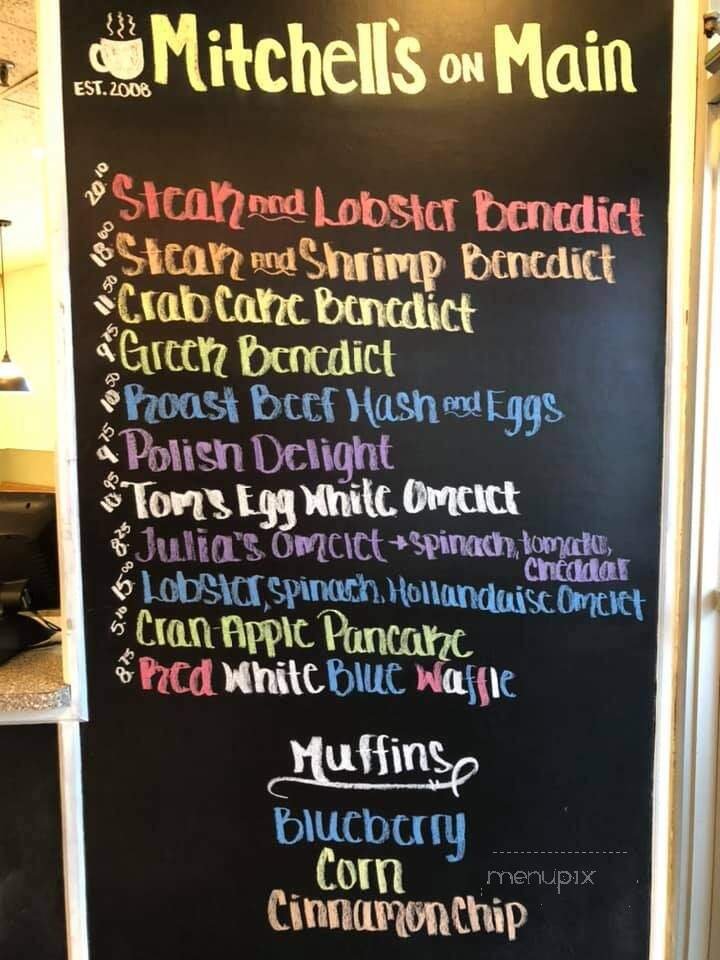 Mitchell's on Main
EST. 2008
20.10 Steak and Lobster Benedict
18.60 Steak and Shrimp Benedict
11.50 Crab Cake Benedict
9.75 Greek Benedict
10.50 Roast Beef Hash and Eggs
9.75 Polish Delight
10.95 Tom's Egg White Omelet
8.25 Julia's Omelet → spinach, tomato,
cheddar
15.00 Lobster, spinach, Hollandaise Omelet
5.10 Cran-Apple Pancake
8.75 Red White Blue Waffle
Muffins
Blueberry
Corn
Cinnamon Chip
menupix